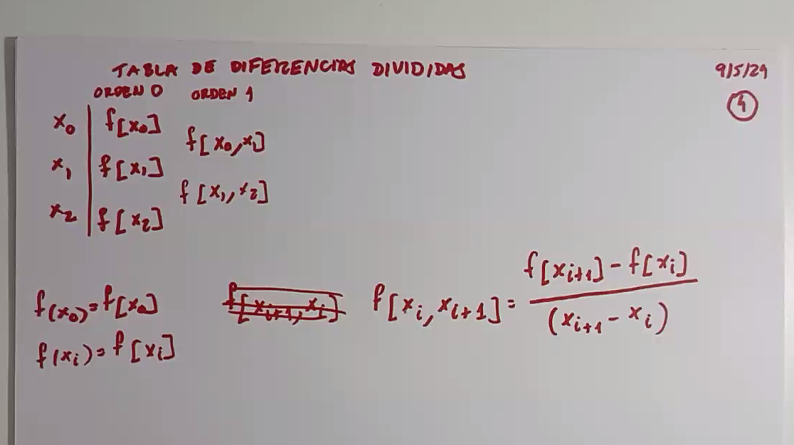 TABLA DE DIFERENCIAS DIVIDIDAS 9/5/24
ORDEN 0 ORDEN 1 4
x₀ f[x₀]
f[x₀,x₁]
x₁ f[x₁]
f[x₁,x₂]
x₂ f[x₂]
f(x₀)=f[x₀] f[xᵢ₊₁,xᵢ] f[xᵢ,xᵢ₊₁]= f[xᵢ₊₁]-f[xᵢ]
(xᵢ₊₁-xᵢ)
f(xᵢ)=f[xᵢ]